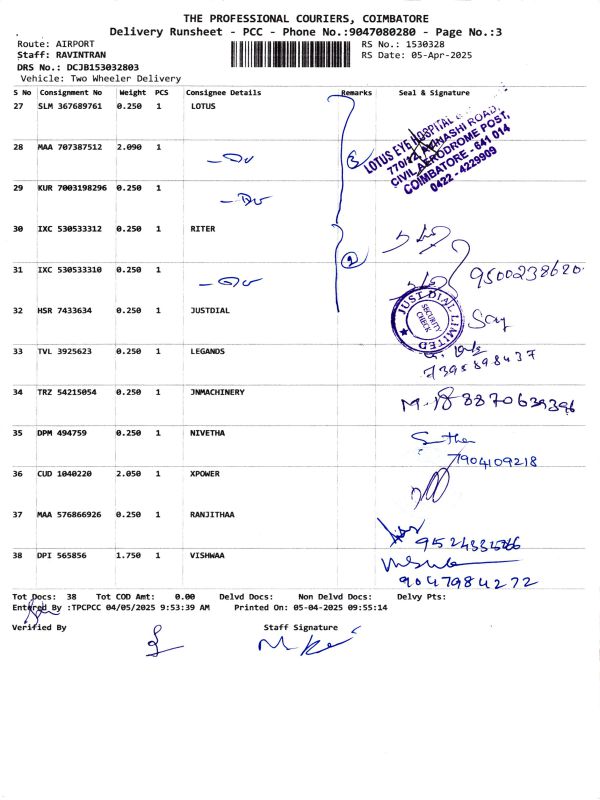 THE PROFESSIONAL COURIERS, COIMBATORE
Delivery Runsheet - PCC - Phone No.:9047080280 - Page No.:3
Route: AIRPORT RS No.: 1530328
Staff: RAVINTRAN RS Date: 05-Apr-2025
DRS No.: DCJB153032803
Vehicle: Two Wheeler Delivery
S No Consignment No Weight PCS Consignee Details Remarks Seal & Signature
27 SLM 367689761 0.250 1 LOTUS
LOTUS EYE HOSPITAL
770/12 AVINASHI ROAD,
CIVIL AERODROME POST,
COIMBATORE - 641 014
0422 - 4229909
28 MAA 707387512 2.090 1
-Do
3
29 KUR 7003198296 0.250 1
-Do
30 IXC 530533312 0.250 1 RITER
2
31 IXC 530533310 0.250 1
-Do
9500238620
32 HSR 7433634 0.250 1 JUSTDIAL
JUST DIAL LIMITED
SECURITY CHECK
33 TVL 3925623 0.250 1 LEGANDS
7395898437
34 TRZ 54215054 0.250 1 JNMACHINERY
8870639396
35 DPM 494759 0.250 1 NIVETHA
7904109218
36 CUD 1040220 2.050 1 XPOWER
37 MAA 576866926 0.250 1 RANJITHAA
38 DPI 565856 1.750 1 VISHWAA
9047984272
Tot Docs: 38 Tot COD Amt: 0.00 Delvd Docs: Non Delvd Docs: Delvy Pts:
Entered By :TPCPCC 04/05/2025 9:53:39 AM Printed On: 05-04-2025 09:55:14
Verified By Staff Signature